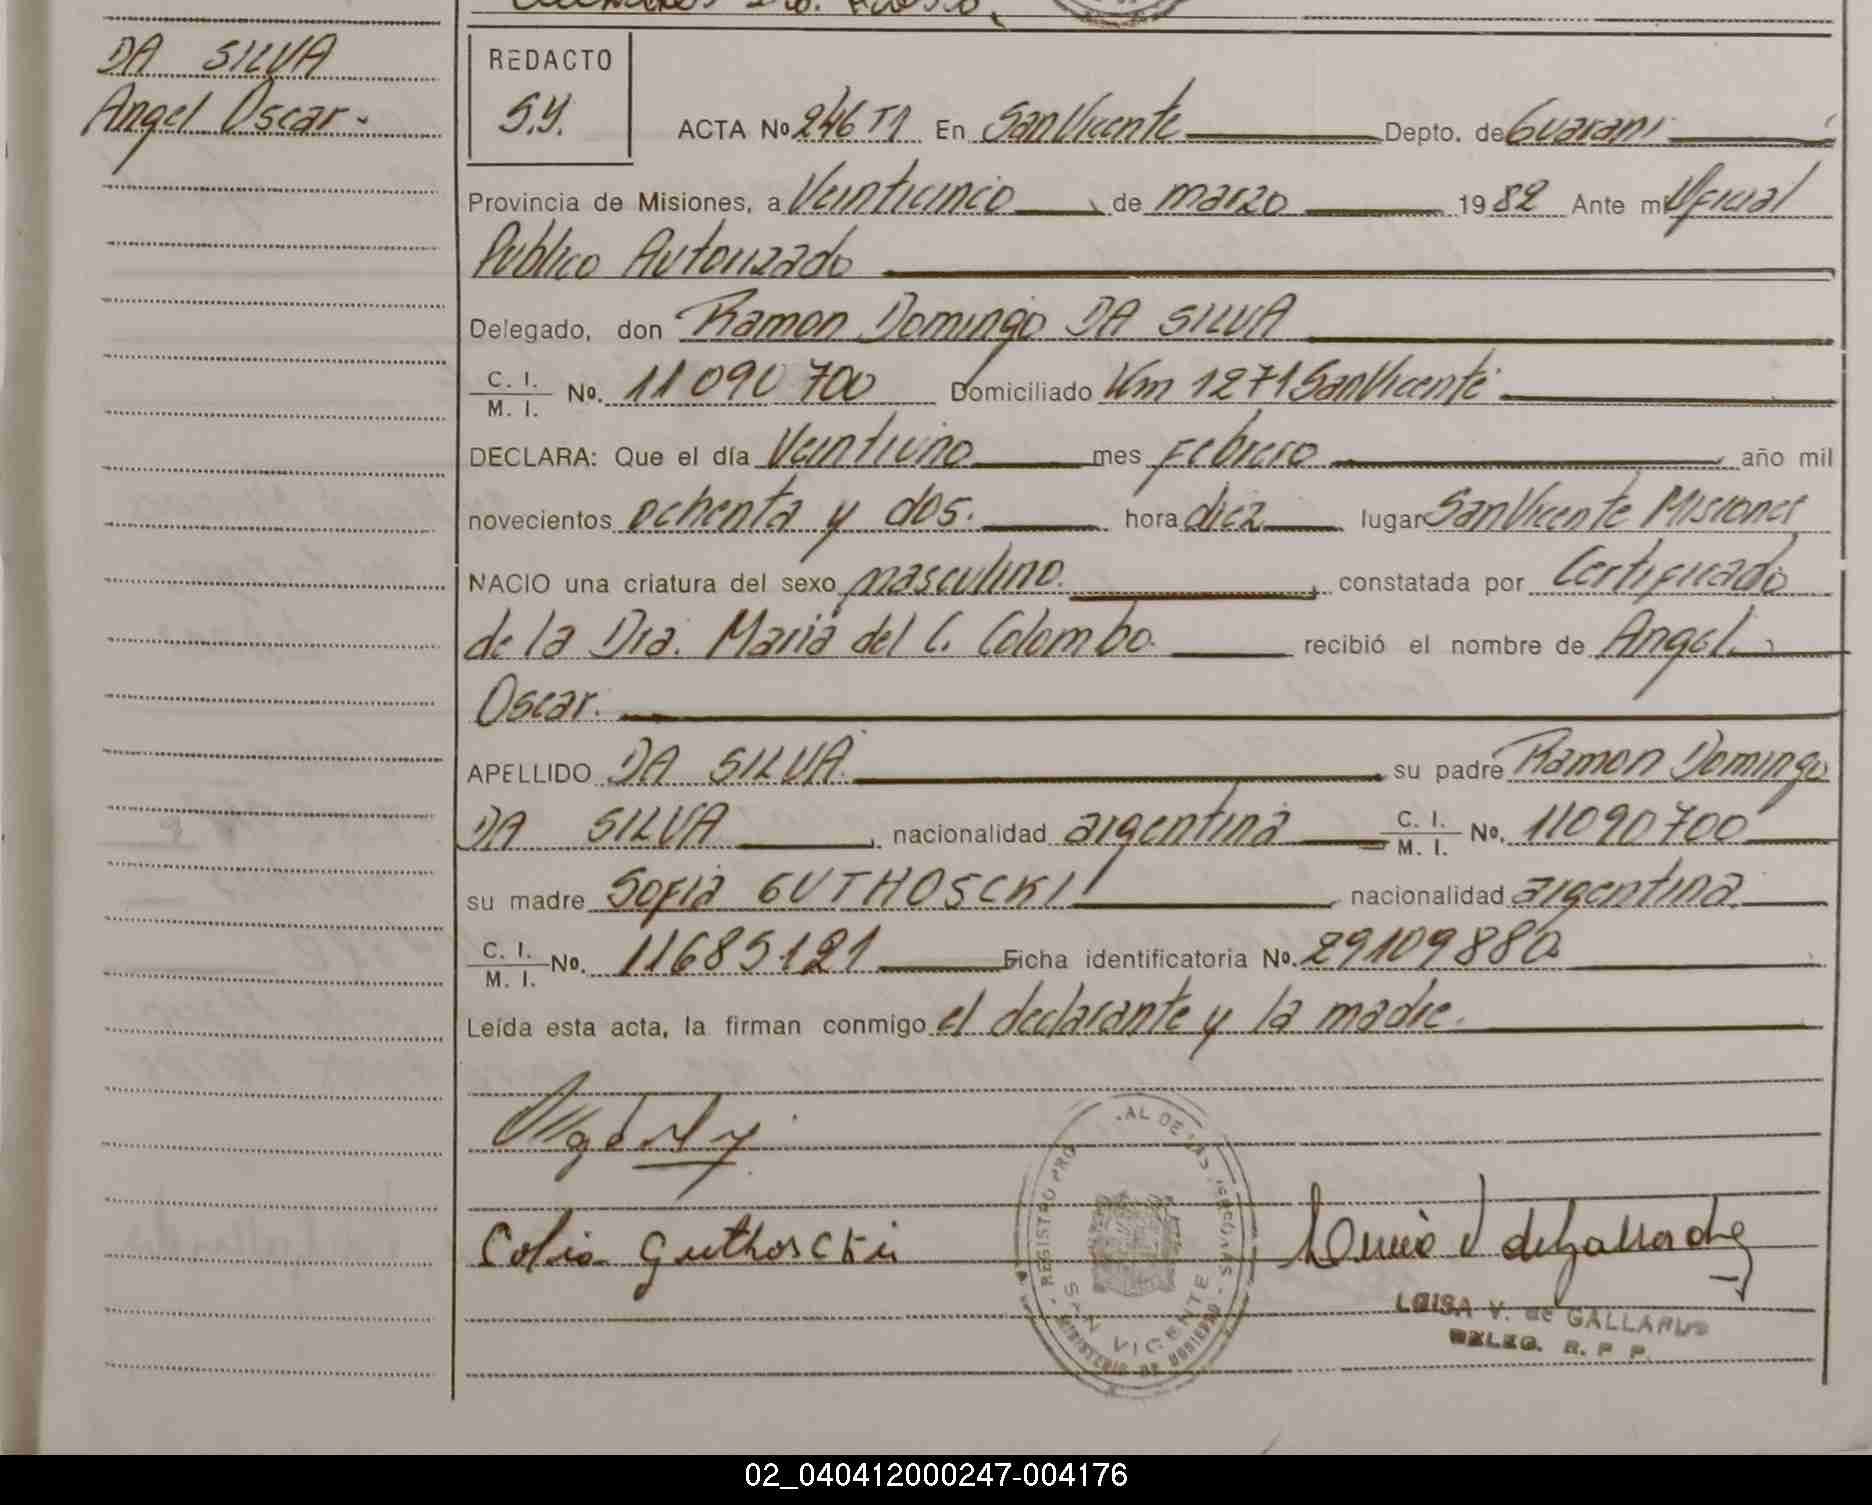 DA SILVA
Angel Oscar.
REDACTO
S.Y.
ACTA No 246 T1 En San Vicente Depto. de Guarani
Provincia de Misiones, a Veinticinco de marzo 1982 Ante mi Oficial
Publico Autorizado
Delegado, don Ramon Domingo DA SILVA
C. I. / M. I. No. 11 090 700 Domiciliado Km 1271 San Vicente
DECLARA: Que el día Veintiuno mes Febrero año mil
novecientos ochenta y dos. hora diez lugar San Vicente Misiones
NACIO una criatura del sexo masculino. constatada por Certificado
de la Dra. Maria del C. Colombo. recibió el nombre de Angel
Oscar.
APELLIDO DA SILVA. su padre Ramon Domingo
DA SILVA, nacionalidad argentina C. I. / M. I. No. 11090700
su madre Sofia GUTHOSCKI, nacionalidad argentina.
C. I. / M. I. No. 11685121 Ficha identificatoria No. 29109880
Leída esta acta, la firman conmigo el declarante y la madre.
Sofia Guthoscki
REGISTRO PRO AL DE LAS PERSONAS
SAN VICENTE
MINISTERIO DE GOBIERNO
LUISA V. de GALLARDO
DELEG. R. P. P.
02_040412000247-004176